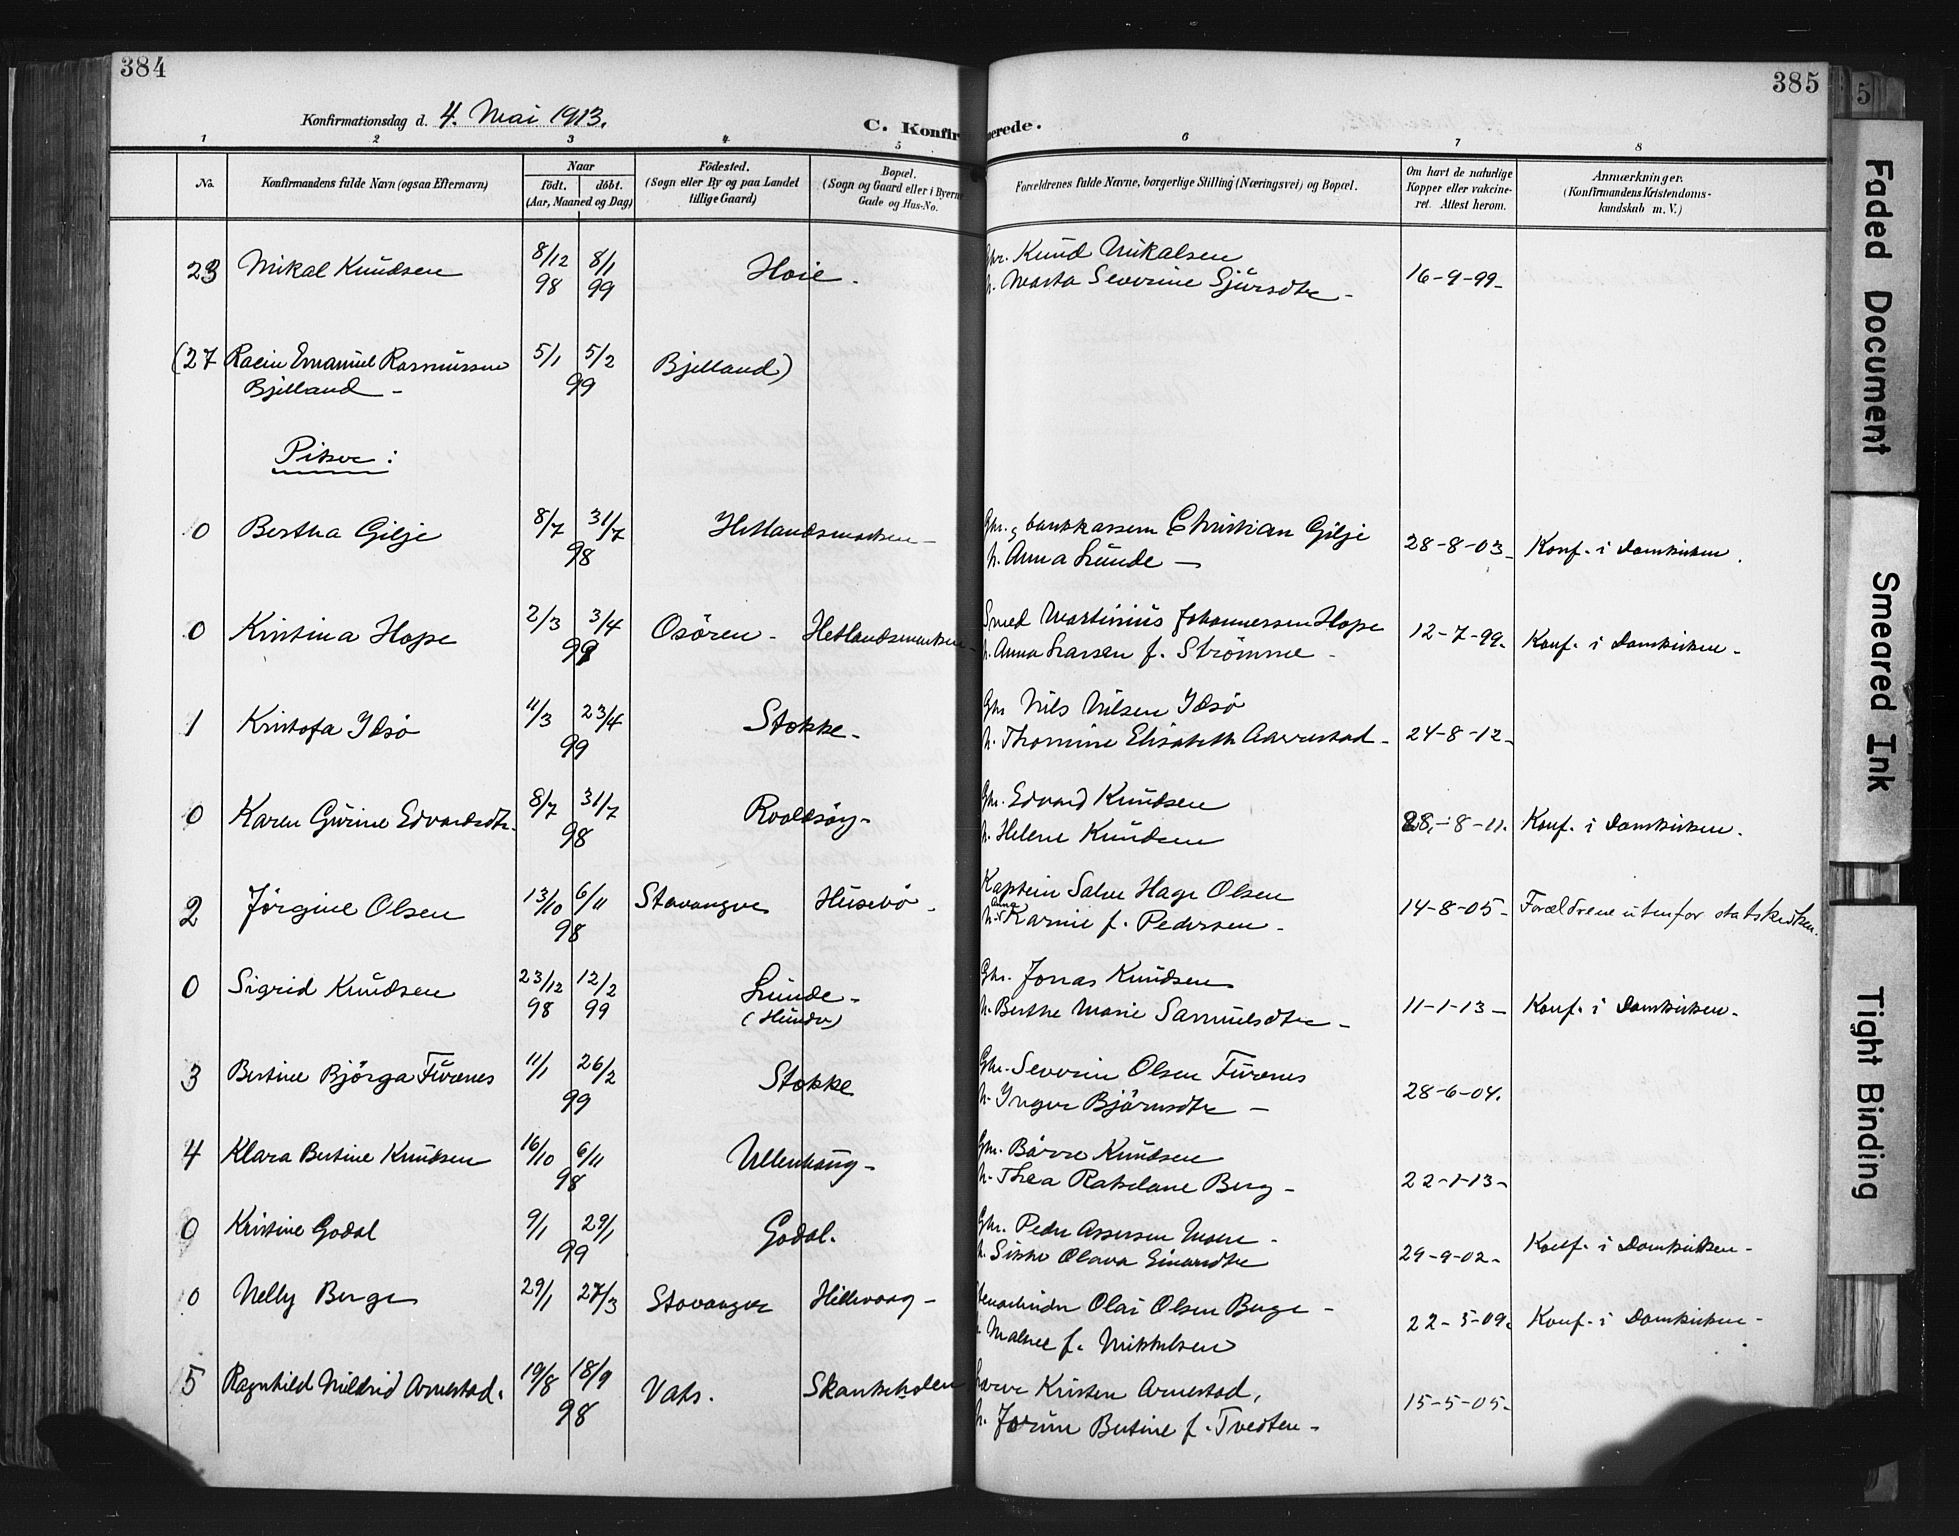 384
385
5
Konfirmationsdag d. 4. Mai 1913.
C. Konfirmerede.
1 2 3 4 5 6 7 8
No.
Konfirmandens fulde Navn (ogsaa Efternavn)
Naar
födt. döbt.
(Aar, Maaned og Dag)
Födested.
(Sogn eller By og paa Landet
tillige Gaard)
Bopæl.
(Sogn og Gaard eller i Byerne
Gade og Hus-No.
Forældrenes fulde Navne, borgerlige Stilling (Næringsvei) og Bopæl.
Om havt de naturlige
Kopper eller vakcine-
ret. Attest herom.
Anmærkninger.
(Konfirmandens Kristendoms-
kundskab m. V.)
23 Mikal Knudsen 8/12 98 8/1 99 Høie. Gbr. Knud Mikalsen
h. Marta Severine Sjursdtr - 16-9-99-
(27 Rasmussen 5/1 5/2 99 Bjelland)
Bjelland -
Piker:
0 Bertha Gilje 8/7 31/7 98 Hetlandsmarken - Gbr. Christian Gilje
h. Anna Lunde - 28-8-03- Konf. i Domkirken.
0 Kristina Hope 2/3 3/4 99 Osören - Hetlandsmarken - Smed Martinius Johannessen Hope
h. Anna Larsen f. Strømme - 12-7-99. Konf. i Domkirken -
1 Kristofa Idsö 11/3 23/4 99 Stokke - Gbr Nils Nilsen Idsö
h. Thomine Elisabeth - 24-8-12-
0 Karen Gurine Edvardsdtr. 8/7 31/7 98 Gbr. Edvard Knudsen
h. Helene Knudsen 28-8-11. Konf. i Domkirken.
2 Jörgine Olsen 13/10 6/11 98 Stavanger Husebö. Kaptein Hage Olsen
h. Anna Karine f. Pedersen - 14-8-05- Forældrene utenfor statskirken.
0 Sigrid Knudsen 23/12 98 12/2 99 Lunde - Gbr. Jonas Knudsen
h. Berthe Marie Samuelsdtr - 11-1-13- Konf. i Domkirken -
3 Bertine Bjørga Furenes 11/1 26/2 99 Stokke Gbr. Severin Olsen Furenes
h. Inger Björnsdtr - 28-6-04.
4 Klara Bertine Knudsen 16/10 6/11 98 Ullenhaug - Gbr. Børre Knudsen
h. Thea Berg - 22-1-13-
0 Kristine Godal 9/1 29/1 99 Godal. Gbr. Peder Assersen Moen -
h. Olava 29-9-02- Konf. i Domkirken -
0 Nelly Berge 29/1 27/3 Stavanger Hillevaag - Olai Olsen Berge -
f. Mikkelsen 22-3-09. Konf. i Domkirken -
5 Ragnhild Mildrid Arnestad. 19/8 18/9 98 Vats. Lærer Kristen Arnestad,
h. Jorun Bertine f. Tvedten - 15-5-05-
Faded Document
Smeared Ink
Tight Binding